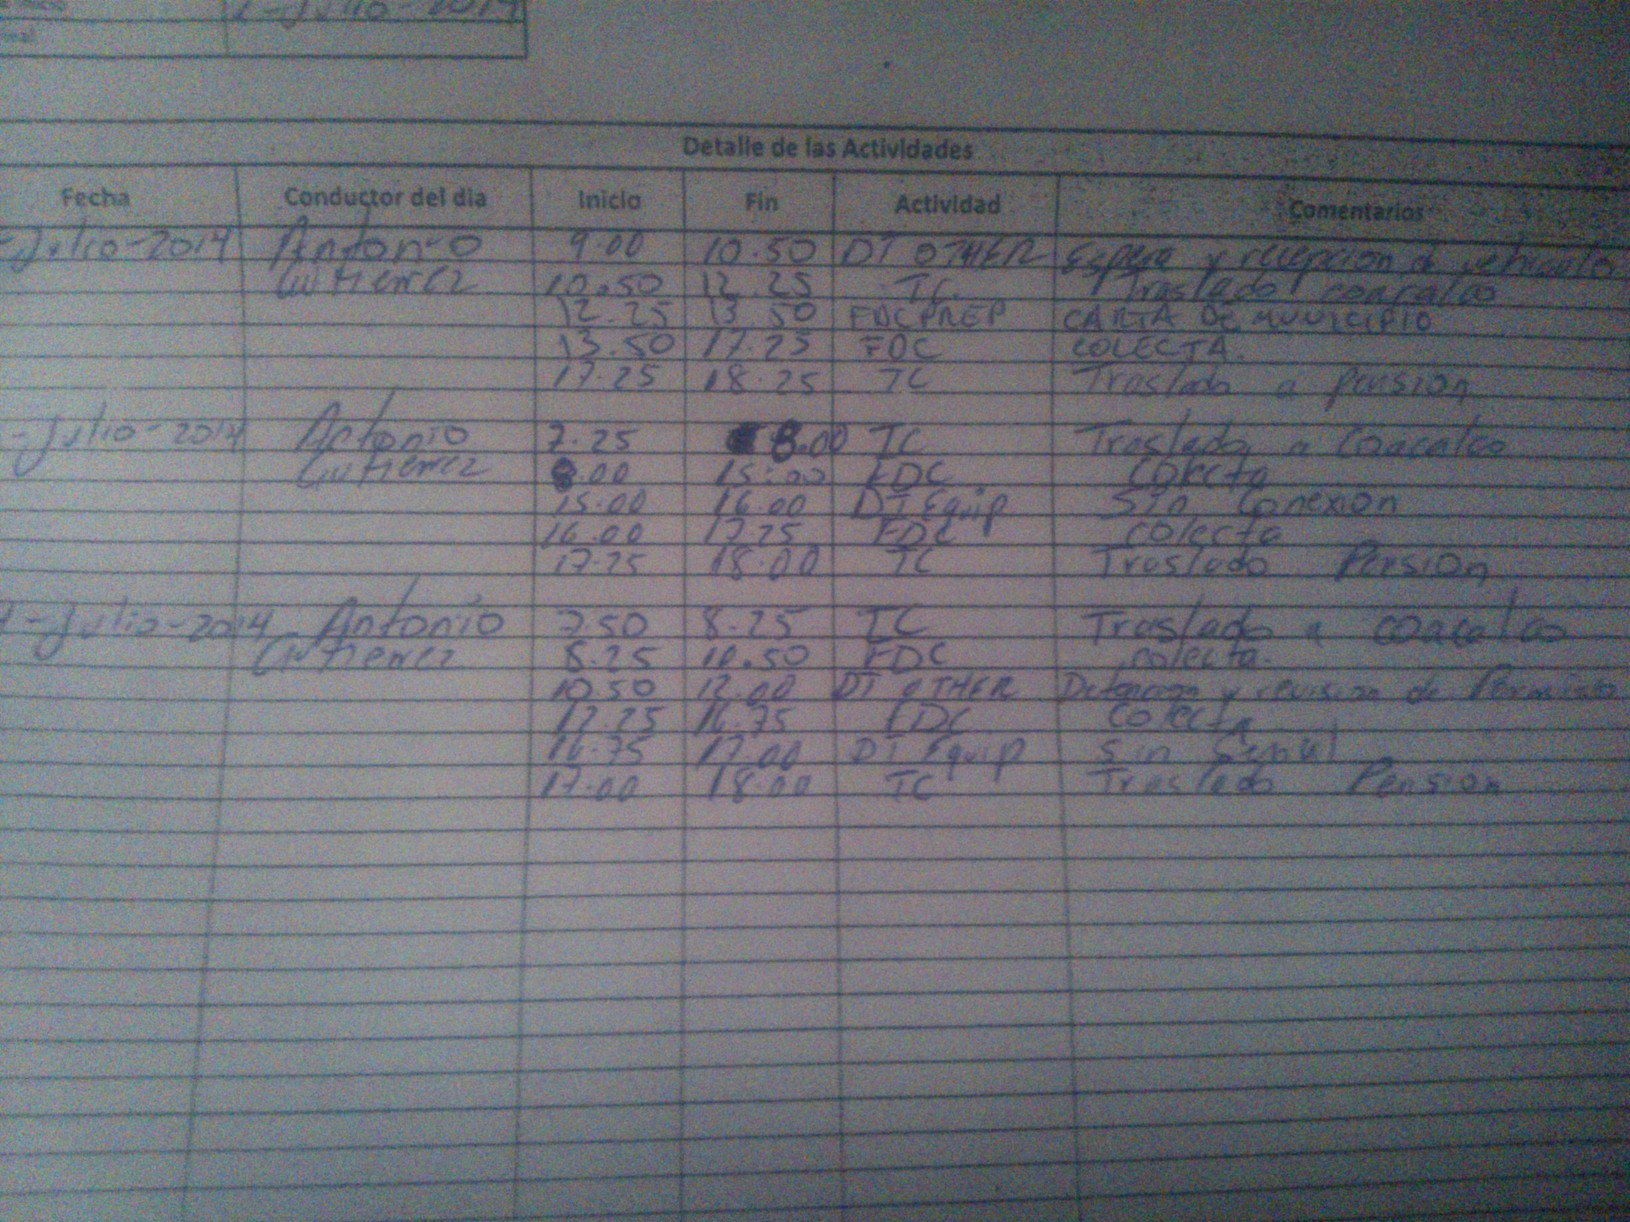 -Julio-2014
Detalle de las Actividades
Fecha Conductor del dia Inicio Fin Actividad Comentarios
-Julio-2014 Antonio 9.00 10.50 DT OTHER Espera y recepcion de vehiculo
Gutierrez 10.50 12.25 TC. Traslado coacalco
12.25 13.50 FDCPREP CARTA DE MUNICIPIO
13.50 17.25 FDC COLECTA.
17.25 18.25 TC Traslado a pension
-Julio-2014 Antonio 7.25 8.00 TC Traslado a Coacalco
Gutierrez 8.00 15:00 FDC Colecta
15.00 16.00 DT Equip Sin Conexion
16.00 17.25 FDC colecta
17.25 18.00 TC Traslado Pension
-Julio-2014 Antonio 7.50 8.25 TC Traslado a coacalco
Gutierrez 8.25 10.50 FDC colecta.
10.50 12.00 DT OTHER y revision de
12.25 16.75 FDC Colecta
16.75 17.00 DT Equip Sin Señal
17.00 18.00 TC Traslado Pension